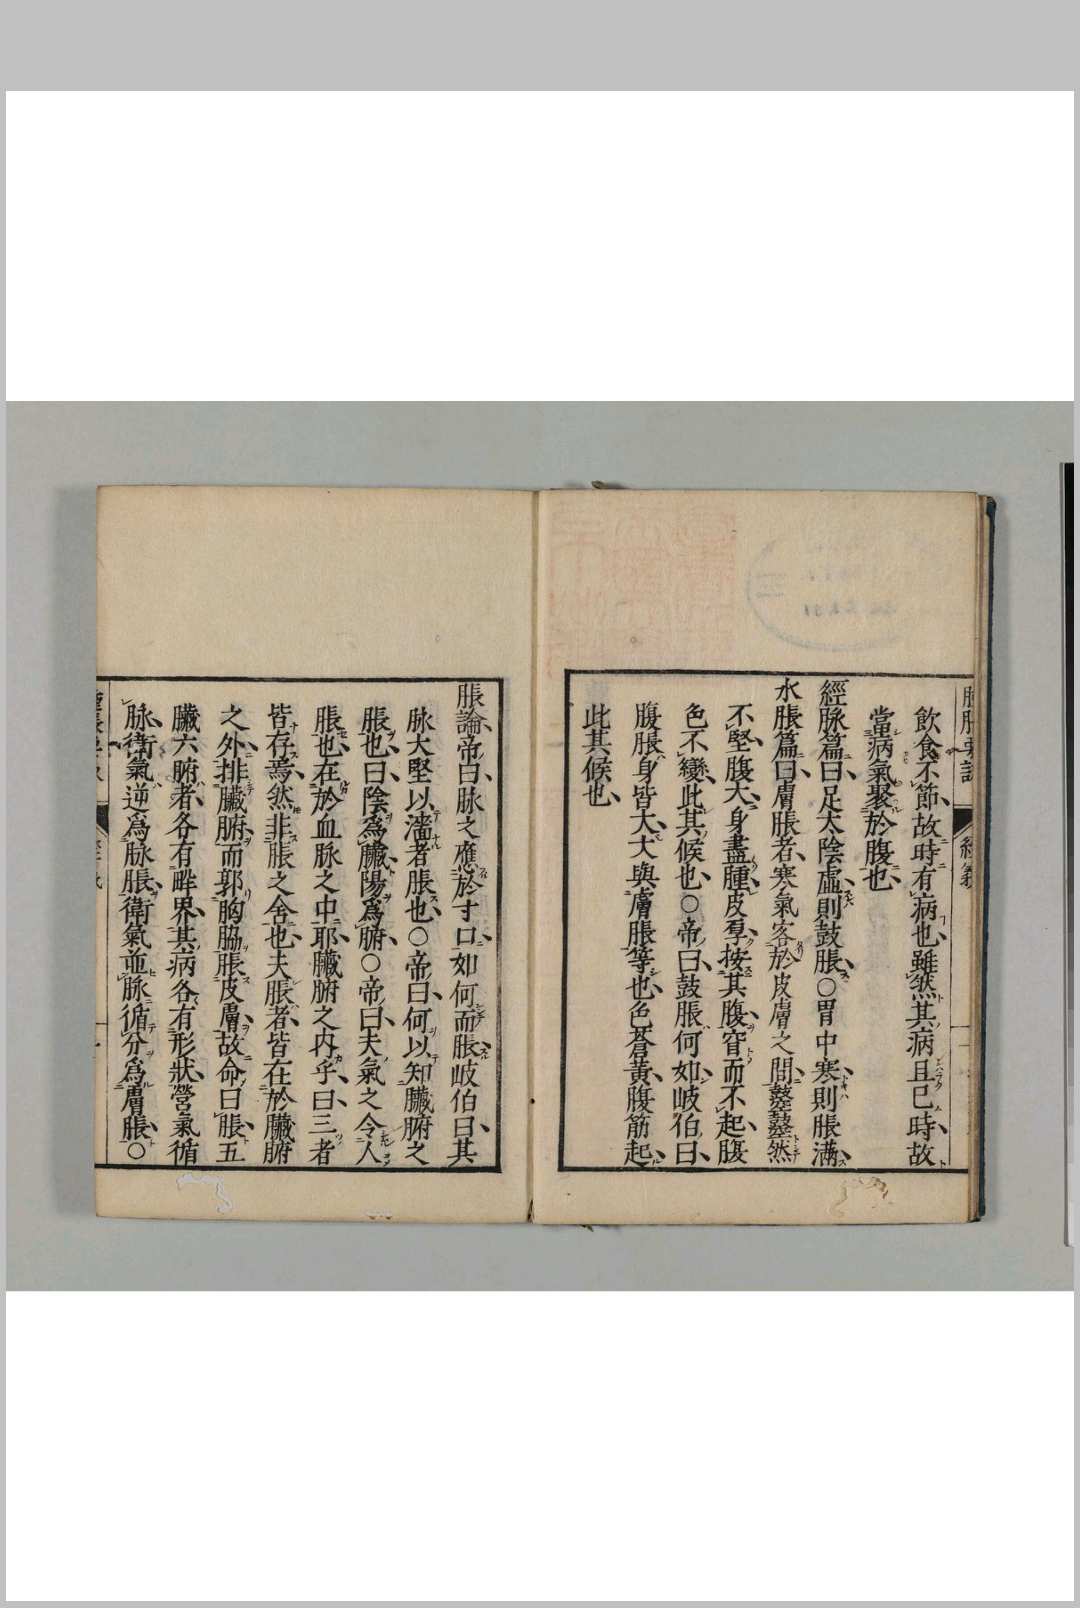 飲食不節故時有病也雖然其病且已時故
當病氣聚於腹也
經脉篇曰足太陰虛則鼓脹○胃中寒則脹滿
水脹篇曰膚脹者寒氣客於皮膚之間𪔣𪔣然
不堅腹大身盡腫皮厚按其腹窅而不起腹
色不變此其候也○帝曰鼓脹何如岐伯曰
腹脹身皆大大與膚脹等也色蒼黃腹筋起
此其候也
脹論帝曰脉之應於寸口如何而脹岐伯曰其
脉大堅以濇者脹也○帝曰何以知臟腑之
脹也曰陰爲臟陽爲腑○帝曰夫氣之令人
脹也在於血脉之中耶臟腑之内乎曰三者
皆存焉然非脹之舍也夫脹者皆在於臟腑
之外排臟腑而郭胸脇脹皮膚故命曰脹五
臟六腑者各有畔界其病各有形狀營氣循
脉衛氣逆爲脉脹衛氣並脉循分爲膚脹○